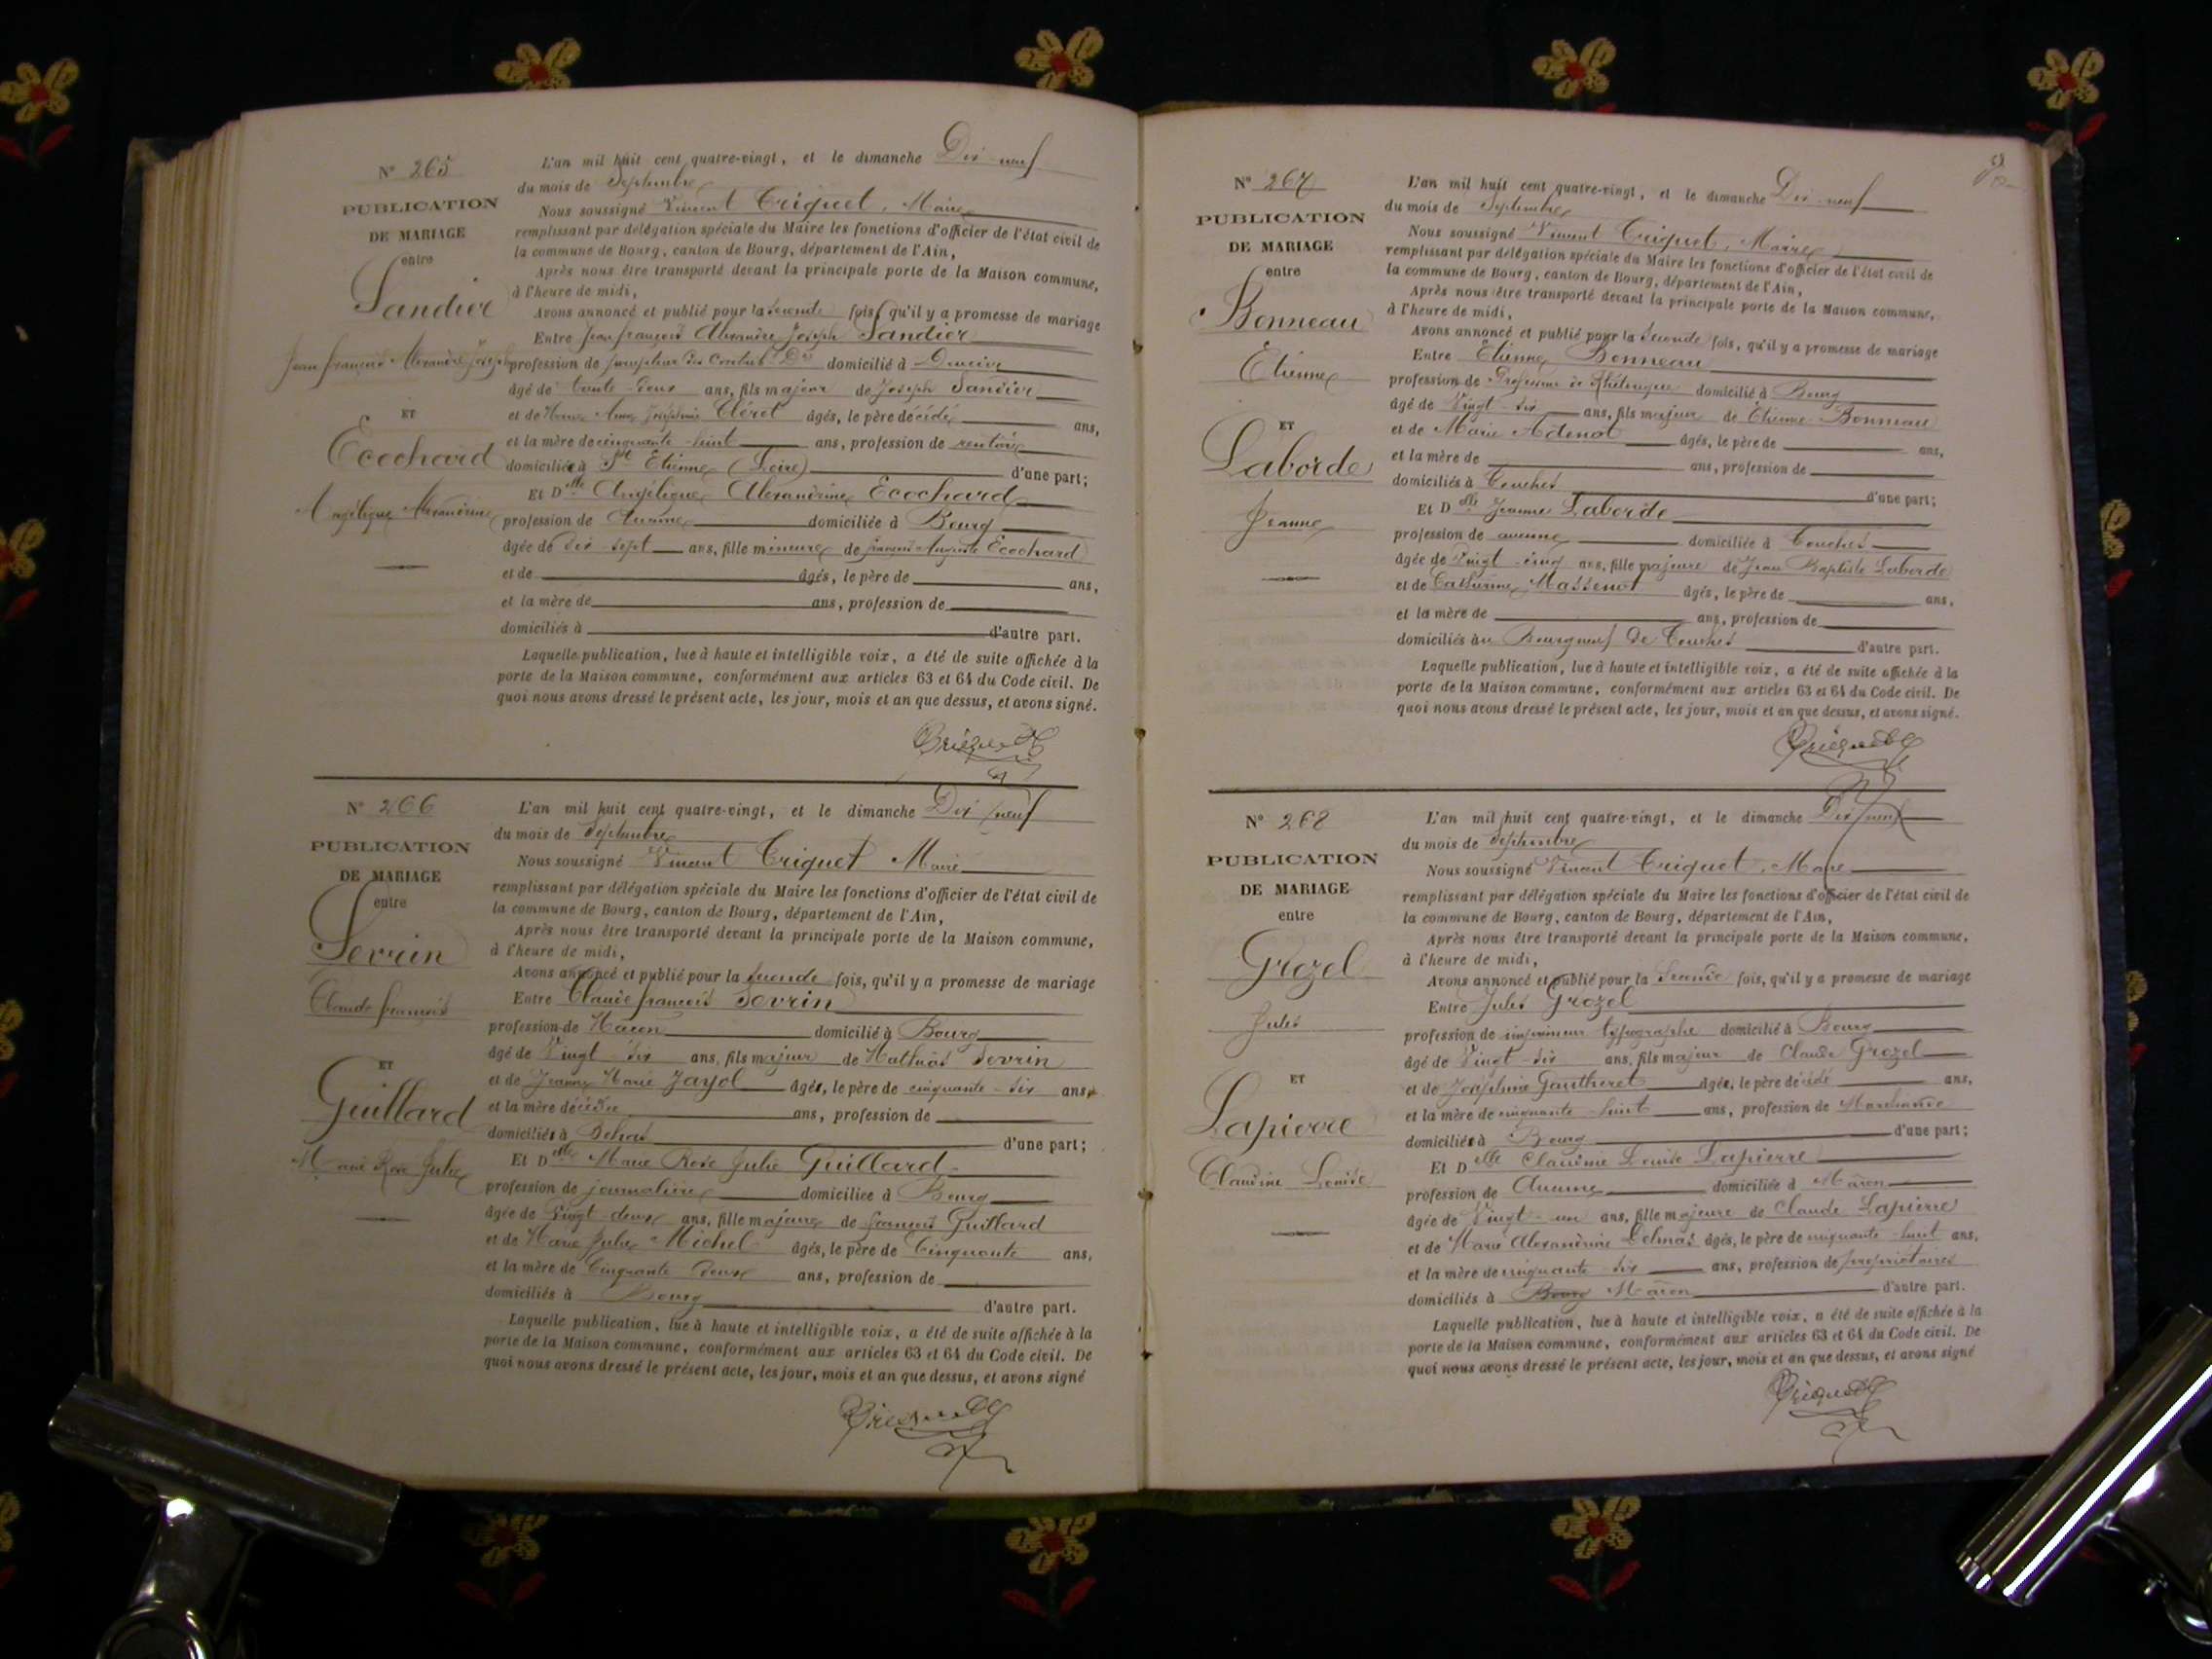 N° 265
PUBLICATION
DE MARIAGE
entre
Sandier
Jean François Alexandre Joseph
ET
Ecochard
Angélique Alexandrine
L'an mil huit cent quatre-vingt, et le dimanche Dix-neuf
du mois de Septembre
Nous soussigné Vincent Triquet, Maire
remplissant par délégation spéciale du Maire les fonctions d'officier de l'état civil de
la commune de Bourg, canton de Bourg, département de l'Ain,
Après nous être transporté devant la principale porte de la Maison commune,
à l'heure de midi,
Avons annoncé et publié pour la Seconde fois, qu'il y a promesse de mariage
Entre Jean François Alexandre Joseph Sandier
profession de domicilié à
âgé de trente-deux ans, fils majeur de Joseph Sandier
et de Joséphine Cléret âgés, le père décédé ans,
et la mère de cinquante-huit ans, profession de rentière
domiciliée à St Etienne (Loire) d'une part;
Et Dlle Angélique Alexandrine Ecochard
profession de Aucune domiciliée à Bourg
âgée de dix-sept ans, fille mineure de François Auguste Ecochard
et de âgés, le père de ans,
et la mère de ans, profession de
domiciliés à d'autre part.
Laquelle publication, lue à haute et intelligible voix, a été de suite affichée à la
porte de la Maison commune, conformément aux articles 63 et 64 du Code civil. De
quoi nous avons dressé le présent acte, les jour, mois et an que dessus, et avons signé.
Triquet
N° 266
PUBLICATION
DE MARIAGE
entre
Sevrin
Claude François
ET
Guillard
Marie Rose Julie
L'an mil huit cent quatre-vingt, et le dimanche Dix neuf
du mois de Septembre
Nous soussigné Vincent Triquet Maire
remplissant par délégation spéciale du Maire les fonctions d'officier de l'état civil de
la commune de Bourg, canton de Bourg, département de l'Ain,
Après nous être transporté devant la principale porte de la Maison commune,
à l'heure de midi,
Avons annoncé et publié pour la seconde fois, qu'il y a promesse de mariage
Entre Claude François Sevrin
profession de Maçon domicilié à Bourg
âgé de Vingt-six ans, fils majeur de Mathias Sevrin
et de Jeanne Marie Jayol âgés, le père de cinquante-six ans,
et la mère décédée ans, profession de
domiciliés à d'une part;
Et Dlle Marie Rose Julie Guillard
profession de journalière domiciliée à Bourg
âgée de Vingt deux ans, fille majeure de François Guillard
et de Marie Julie Michel âgés, le père de Cinquante ans,
et la mère de Cinquante deux ans, profession de
domiciliés à Bourg d'autre part.
Laquelle publication, lue à haute et intelligible voix, a été de suite affichée à la
porte de la Maison commune, conformément aux articles 63 et 64 du Code civil. De
quoi nous avons dressé le présent acte, les jour, mois et an que dessus, et avons signé
Triquet
N° 267
PUBLICATION
DE MARIAGE
entre
Bonneau
Etienne
ET
Laborde
Jeanne
L'an mil huit cent quatre-vingt, et le dimanche Dix-neuf
du mois de Septembre
Nous soussigné Vincent Triquet, Maire
remplissant par délégation spéciale du Maire les fonctions d'officier de l'état civil de
la commune de Bourg, canton de Bourg, département de l'Ain,
Après nous être transporté devant la principale porte de la Maison commune,
à l'heure de midi,
Avons annoncé et publié pour la Seconde fois, qu'il y a promesse de mariage
Entre Etienne Bonneau
profession de Professeur de Rhétorique domicilié à Bourg
âgé de Vingt-six ans, fils majeur de Etienne Bonneau
et de Marie Adenot âgés, le père de ans,
et la mère de ans, profession de
domiciliés à Couches d'une part;
Et Dlle Jeanne Laborde
profession de aucune domiciliée à Couches
âgée de Vingt-cinq ans, fille majeure de Jean Baptiste Laborde
et de Catherine Massenot âgés, le père de ans,
et la mère de ans, profession de
domiciliés au Bourgneuf de Couches d'autre part.
Laquelle publication, lue à haute et intelligible voix, a été de suite affichée à la
porte de la Maison commune, conformément aux articles 63 et 64 du Code civil. De
quoi nous avons dressé le présent acte, les jour, mois et an que dessus, et avons signé.
Triquet
N° 268
PUBLICATION
DE MARIAGE
entre
Grozel
Jules
ET
Lapierre
Claudine Louise
L'an mil huit cent quatre-vingt, et le dimanche Dix neuf
du mois de Septembre
Nous soussigné Vincent Triquet, Maire
remplissant par délégation spéciale du Maire les fonctions d'officier de l'état civil de
la commune de Bourg, canton de Bourg, département de l'Ain,
Après nous être transporté devant la principale porte de la Maison commune,
à l'heure de midi,
Avons annoncé et publié pour la Seconde fois, qu'il y a promesse de mariage
Entre Jules Grozel
profession de imprimeur typographe domicilié à Bourg
âgé de Vingt-six ans, fils majeur de Claude Grozel
et de Joséphine Gautheret âgés, le père décédé ans,
et la mère de cinquante-huit ans, profession de Marchande
domiciliée à Bourg d'une part;
Et Dlle Claudine Louise Lapierre
profession de Aucune domiciliée à Mâcon
âgée de Vingt-un ans, fille majeure de Claude Lapierre
et de Marie Alexandrine Delmas âgés, le père de cinquante-huit ans,
et la mère de cinquante-six ans, profession de propriétaires
domiciliés à Bourg Mâcon d'autre part.
Laquelle publication, lue à haute et intelligible voix, a été de suite affichée à la
porte de la Maison commune, conformément aux articles 63 et 64 du Code civil. De
quoi nous avons dressé le présent acte, les jour, mois et an que dessus, et avons signé
Triquet